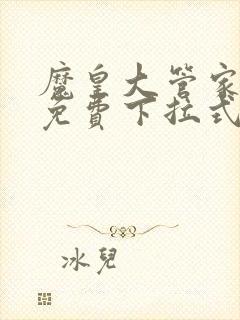 魔皇大管家
免費下拉式
冰兒